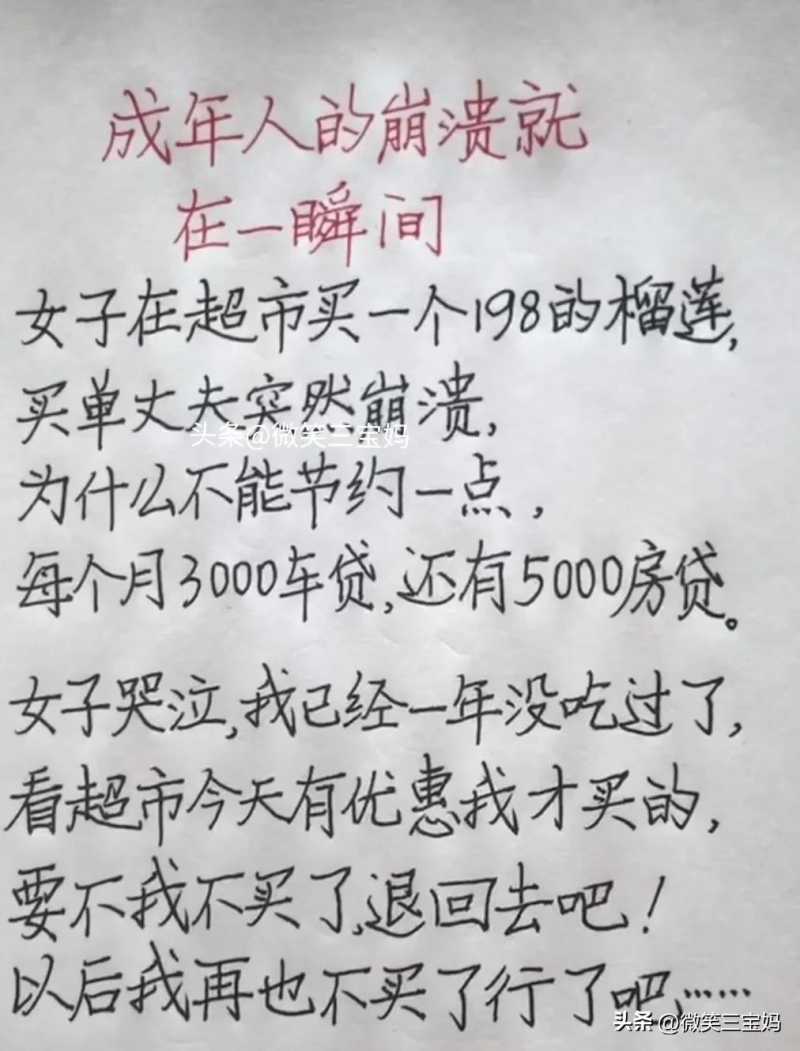 成年人的崩溃就
在一瞬间
女子在超市买一个198的榴莲,
买单丈夫突然崩溃,
头条@微笑三宝妈
为什么不能节约一点,
每个月3000车贷,还有5000房贷。
女子哭泣,我已经一年没吃过了,
看超市今天有优惠我才买的,
要不我不买了,退回去吧!
以后我再也不买了行了吧,……
头条 @微笑三宝妈